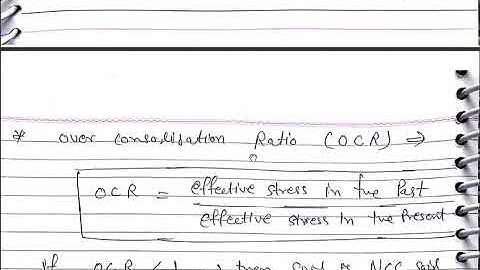 * over Consolisation Ratio (OCR) ⇒
OCR = effective stress in the Past
effective stress in the Present
If OCR